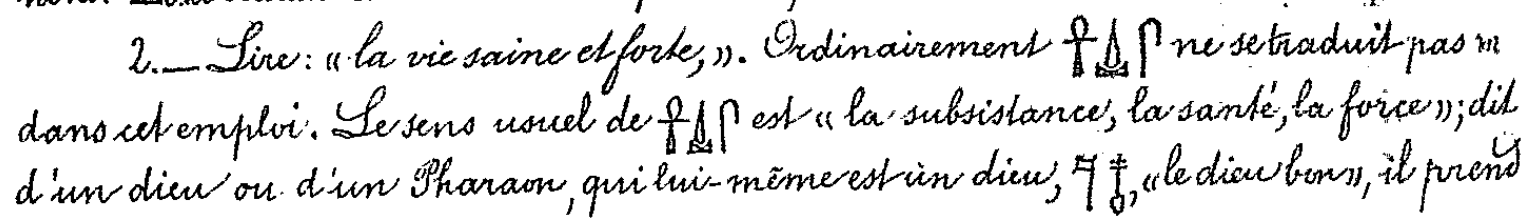 2. — Lire: « la vie saine et forte, ». Ordinairement 𓋹𓍑𓋴 ne se traduit pas
dans cet emploi. Le sens usuel de 𓋹𓍑𓋴 est « la subsistance, la santé, la force »; dit
d'un dieu ou d'un Pharaon, qui lui-même est un dieu, 𓊹𓄤, « le dieu bon », il prend